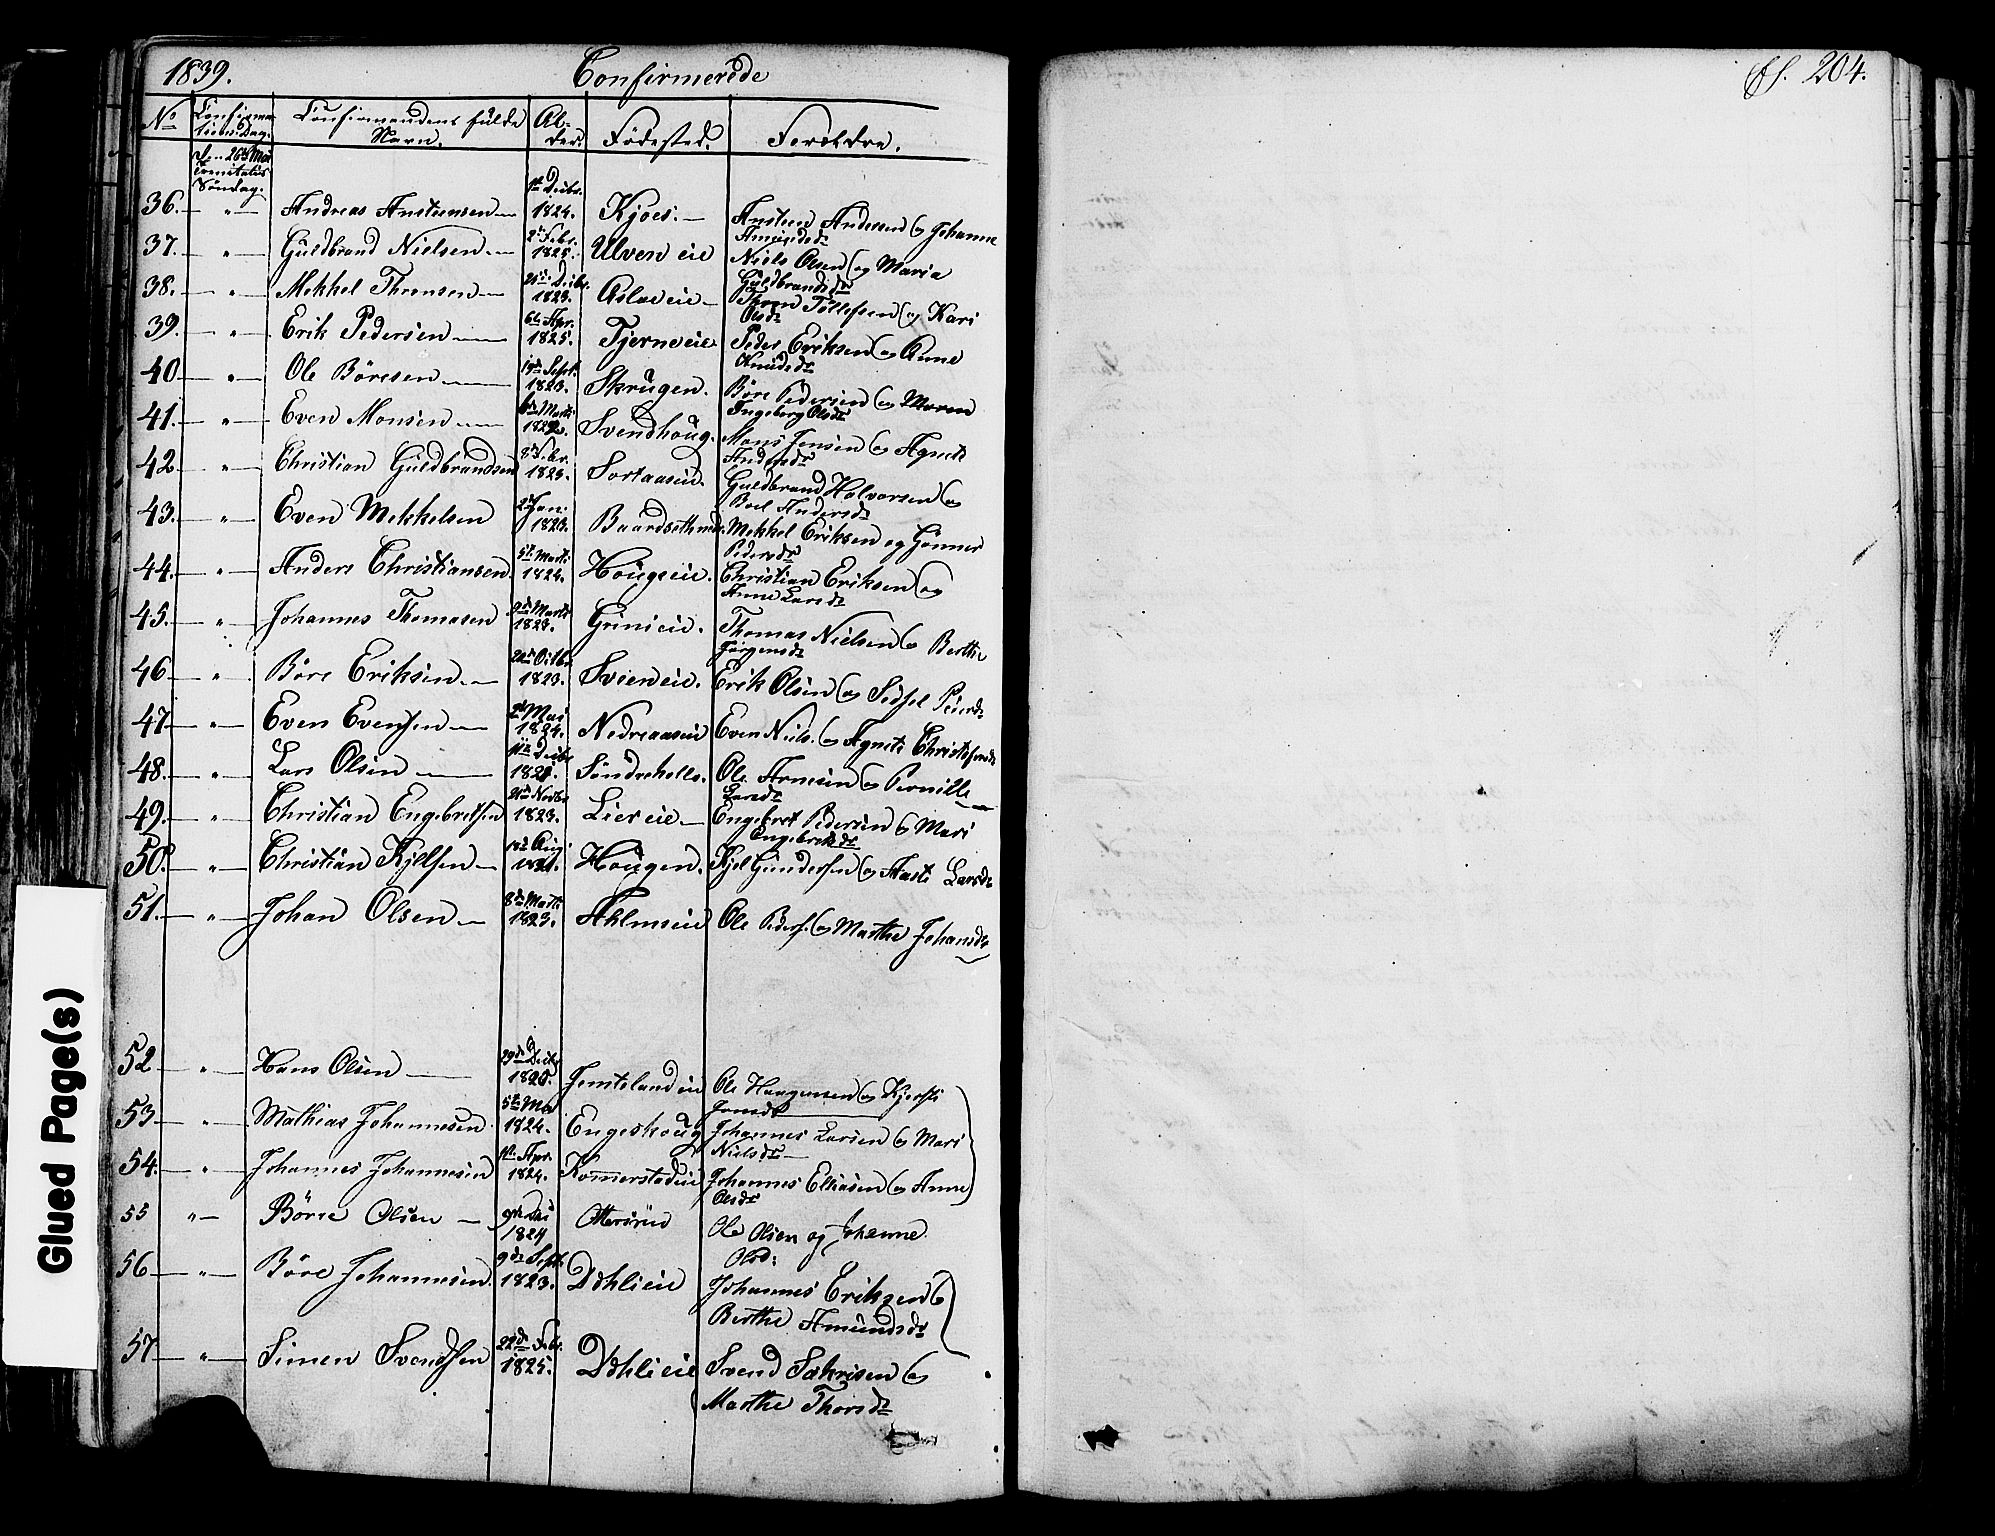 1839. Confirmerede
fol. 204.
No Confirmationsdag. Confirmandens fulde Navn. Alder. Fødested. Forældre.
Den 26de Mai Trinitatis Søndag.
36. " Andreas Anstensen 1ste Decbr. 1824. Kjoes. Ansten Andersen og Johanne Amundsdr
37. " Guldbrand Nielsen 2d Febr. 1825. Ulven eie Niels Olsen og Maria Guldbrandsdr
38. " Mekkel Thronsen Decbr. 1823. Aslaveie Thron Tollefsen og Kari Olsdr
39. " Erik Pedersen 6te Apr. 1825. Tjerneie Peder Eriksen og Anne Knudsdr
40 " Ole Børesen 19de Sept. 1823. Skrugen. Børe Pedersen og Maren Ingeborg Olsdr
41. " Even Monsen 6te Marts Svendhoug. Mons Jensen og Agnete Andersdr
42. " Christian Guldbrandsen 8d Febr. 1823. Sortaaseie. Guldbrand Halvorsen og Boel Andersdr
43. " Even Mekkelsen 2d Jan. 1823. Baardseth Mekkel Eriksen og Gonner Pedersdr
44. " Anders Christiansen 5te Marts 1824. Hougseie. Christian Eriksen og Anne Larsdr
45. " Johannes Thomasen 9de Marts 1823. Grinieie. Thomas Nielsen og Berthe Jørgensdr
46 " Børe Eriksen Octbr 1823. Svieneie. Erik Olsen og Sidsel Pedersdr
47. " Even Evensen 2d Mai 1824. Nedreaaseie Even Niels. og Agnete Christofersdr
48. " Lars Olsen 11te Decbr Søndrekolls. Ole Arnesen og Pernille Larsdr
49. " Christian Engebretsen Novbr 1823. Liereie Engebret Pedersen og Mari Engebretsdr
50. " Christian Kjelsen 18de Aug Hougen. Kjel Gundersen og Aaste Larsdr
51. " Johan Olsen 8de Marts 1823. Ahlmseie Ole Peders. og Marthe Johansdr
52 " Hans Olsen 29de Decbr Jemtelandeie Ole Haagensen og Kjersti Jonsdr
53 " Mathias Johannesen. 5te Mai 1824. Engeskoug Johannes Larsen og Mari Nielsdr
54. " Johannes Johannesen 1ste Apr. 1824. Komerstadeie Johannes Elliasen og Anne Olsdr
55 " Børre Olsen 1824 Ole Olsen og Johanne Olsd:
56 " Børe Johannesen 9de Sept. 1823. Døhlieie Johannes Eriksen og Berthe Amundsdr
57 " Simen Svendsen 22de Febr. 1825. Døhlieie Svend Sakrisen og Marthe Thorsdr
Glued Page(s)